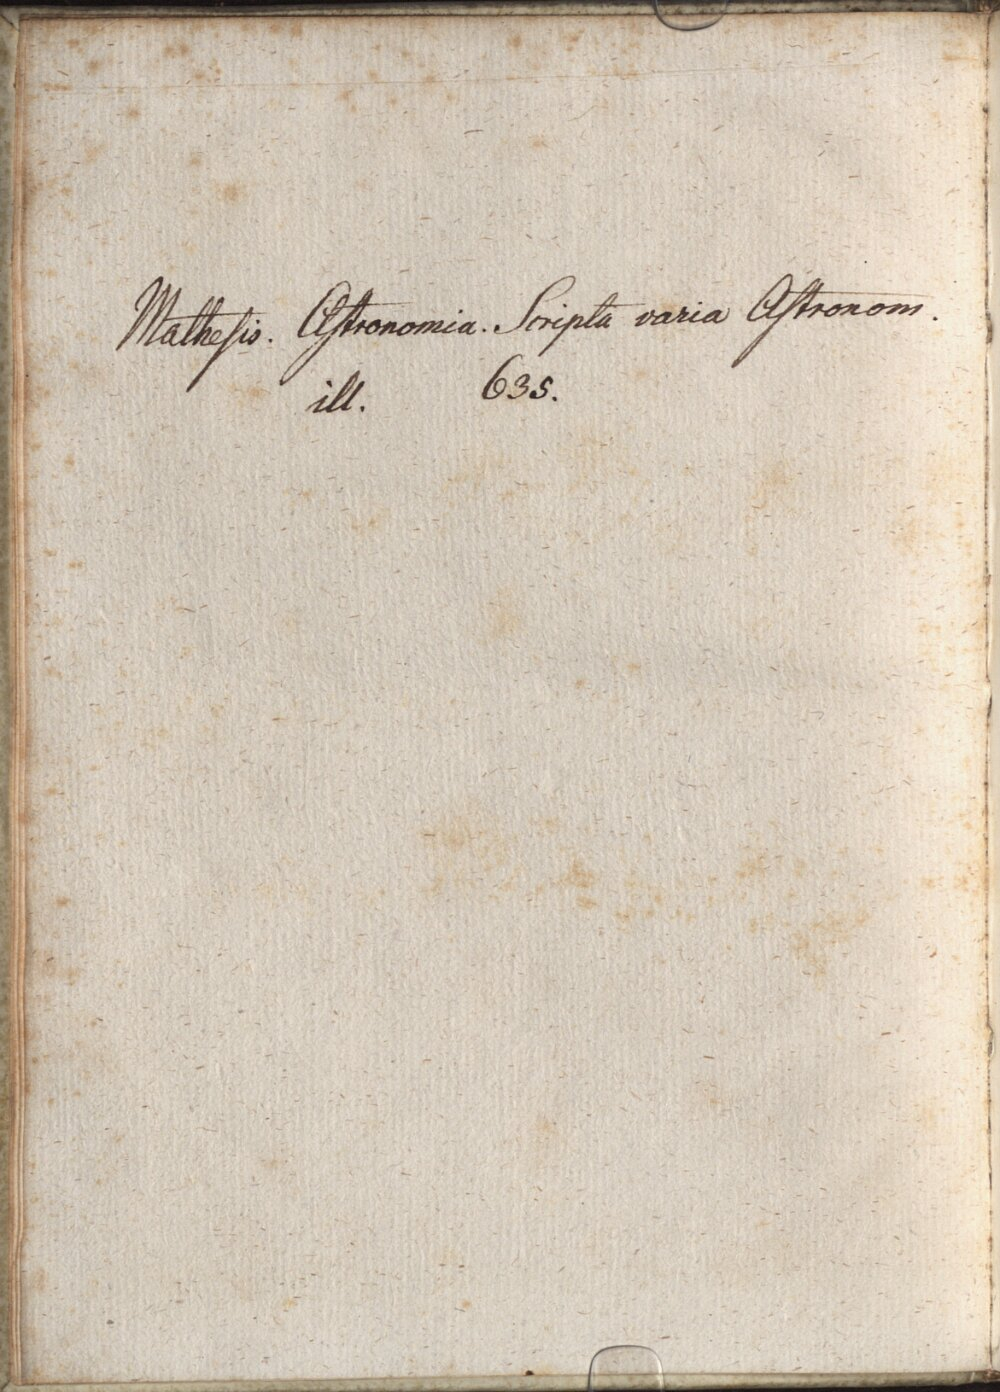 Mathesis. Astronomia. Scripta varia Astronom.
ill. 635.